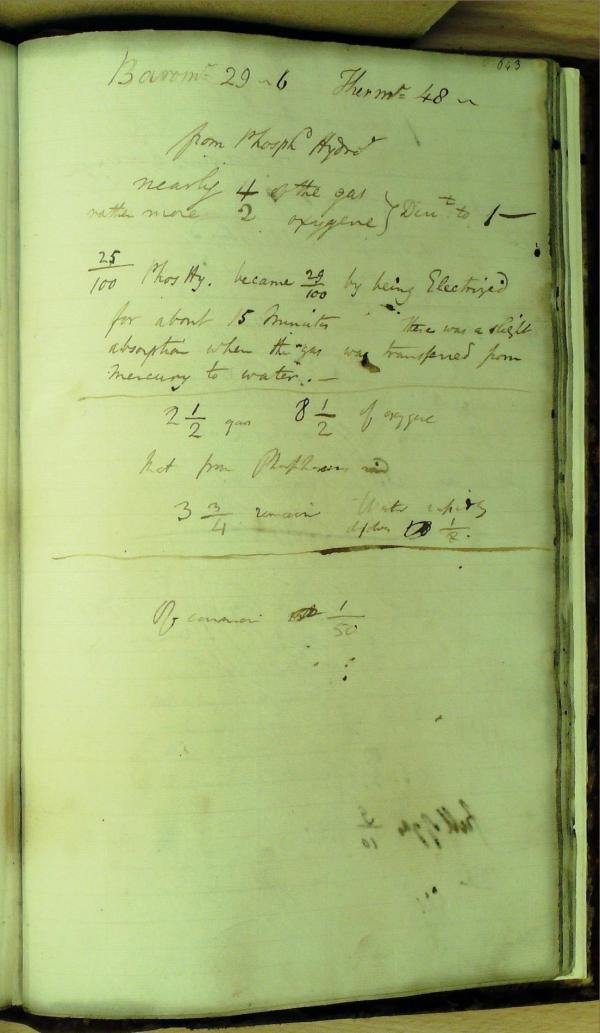 643
Barom.r 29 ~ 6 Therm.r 48 ~
from Phosph.d Hydro.n
nearly 4 of the gas
rather more 2 oxygene } Dim.d to 1 —
25/100 Phos Hy. became 29/100 by being Electrized
for about 15 Minutes there was a slight
absorption when the gas was transferred from
Mercury to water. —
2 1/2 gas 8 1/2 of oxygene
Not from Phosphorous acid
3 3/4 remain Water rapidly
1/2.
Of common 1/50